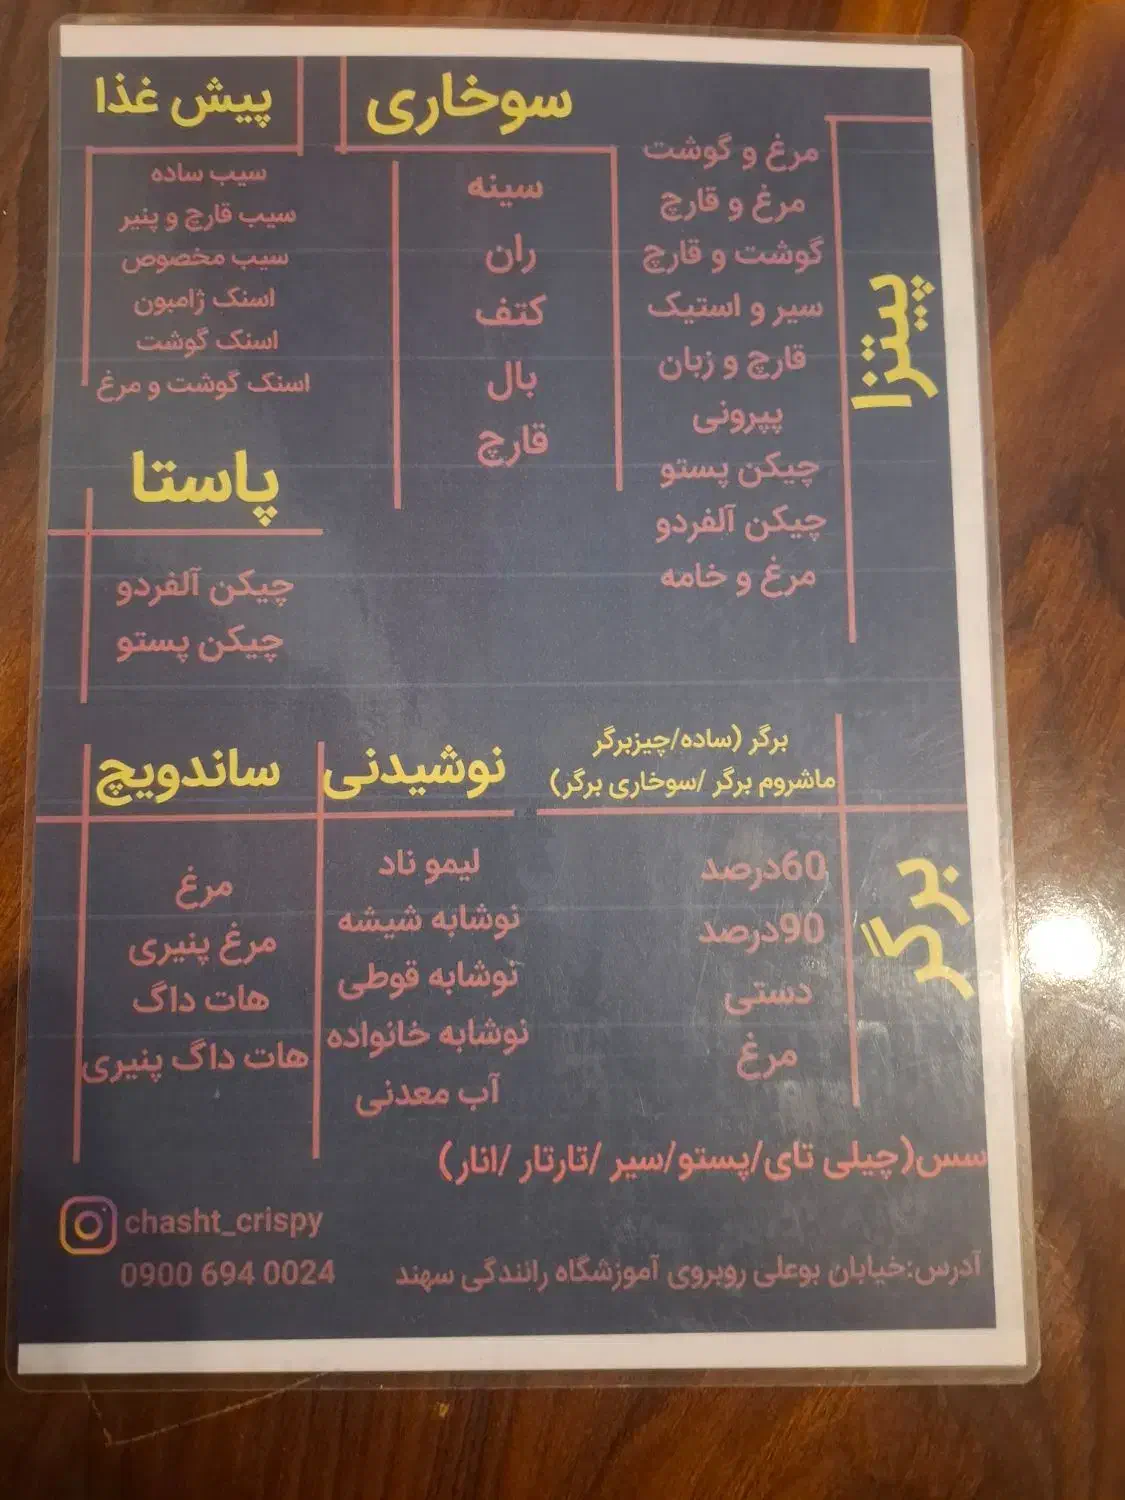 پیتزا
مرغ و گوشت
مرغ و قارچ
گوشت و قارچ
سیر و استیک
قارچ و زبان
پپرونی
چیکن پستو
چیکن آلفردو
مرغ و خامه
سوخاری
سینه
ران
کتف
بال
قارچ
پیش غذا
سیب ساده
سیب قارچ و پنیر
سیب مخصوص
اسنک ژامبون
اسنک گوشت
اسنک گوشت و مرغ
پاستا
چیکن آلفردو
چیکن پستو
برگر
برگر (ساده/چیزبرگر
ماشروم برگر /سوخاری برگر)
60درصد
90درصد
دستی
مرغ
نوشیدنی
لیمو ناد
نوشابه شیشه
نوشابه قوطی
نوشابه خانواده
آب معدنی
ساندویچ
مرغ
مرغ پنیری
هات داگ
هات داگ پنیری
سس(چیلی تای/پستو/سیر /تارتار /انار)
chasht_crispy
آدرس:خیابان بوعلی روبروی آموزشگاه رانندگی سهند
0900 694 0024